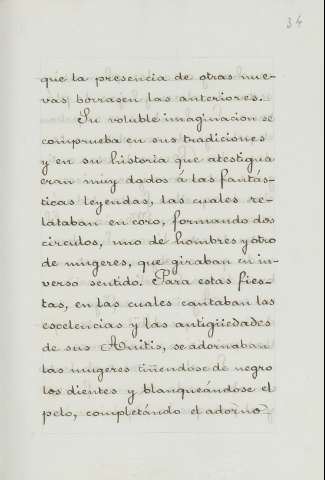 34
que la presencia de otras nue-
vas borrasen las anteriores.
Su voluble imaginacion se
comprueba en sus tradiciones
y en su historia que atestigua
eran muy dados á las fantás-
ticas leyendas, las cuales re-
lataban en coro, formando dos
círculos, uno de hombres y otro
de mugeres, que giraban en in-
verso sentido. Para estas fies-
tas, en las cuales cantaban las
escelencias y las antigüedades
de sus Anitis, se adornaban
las mugeres tiñendose de negro
los dientes y blanqueándose el
pelo, completándo el adorno